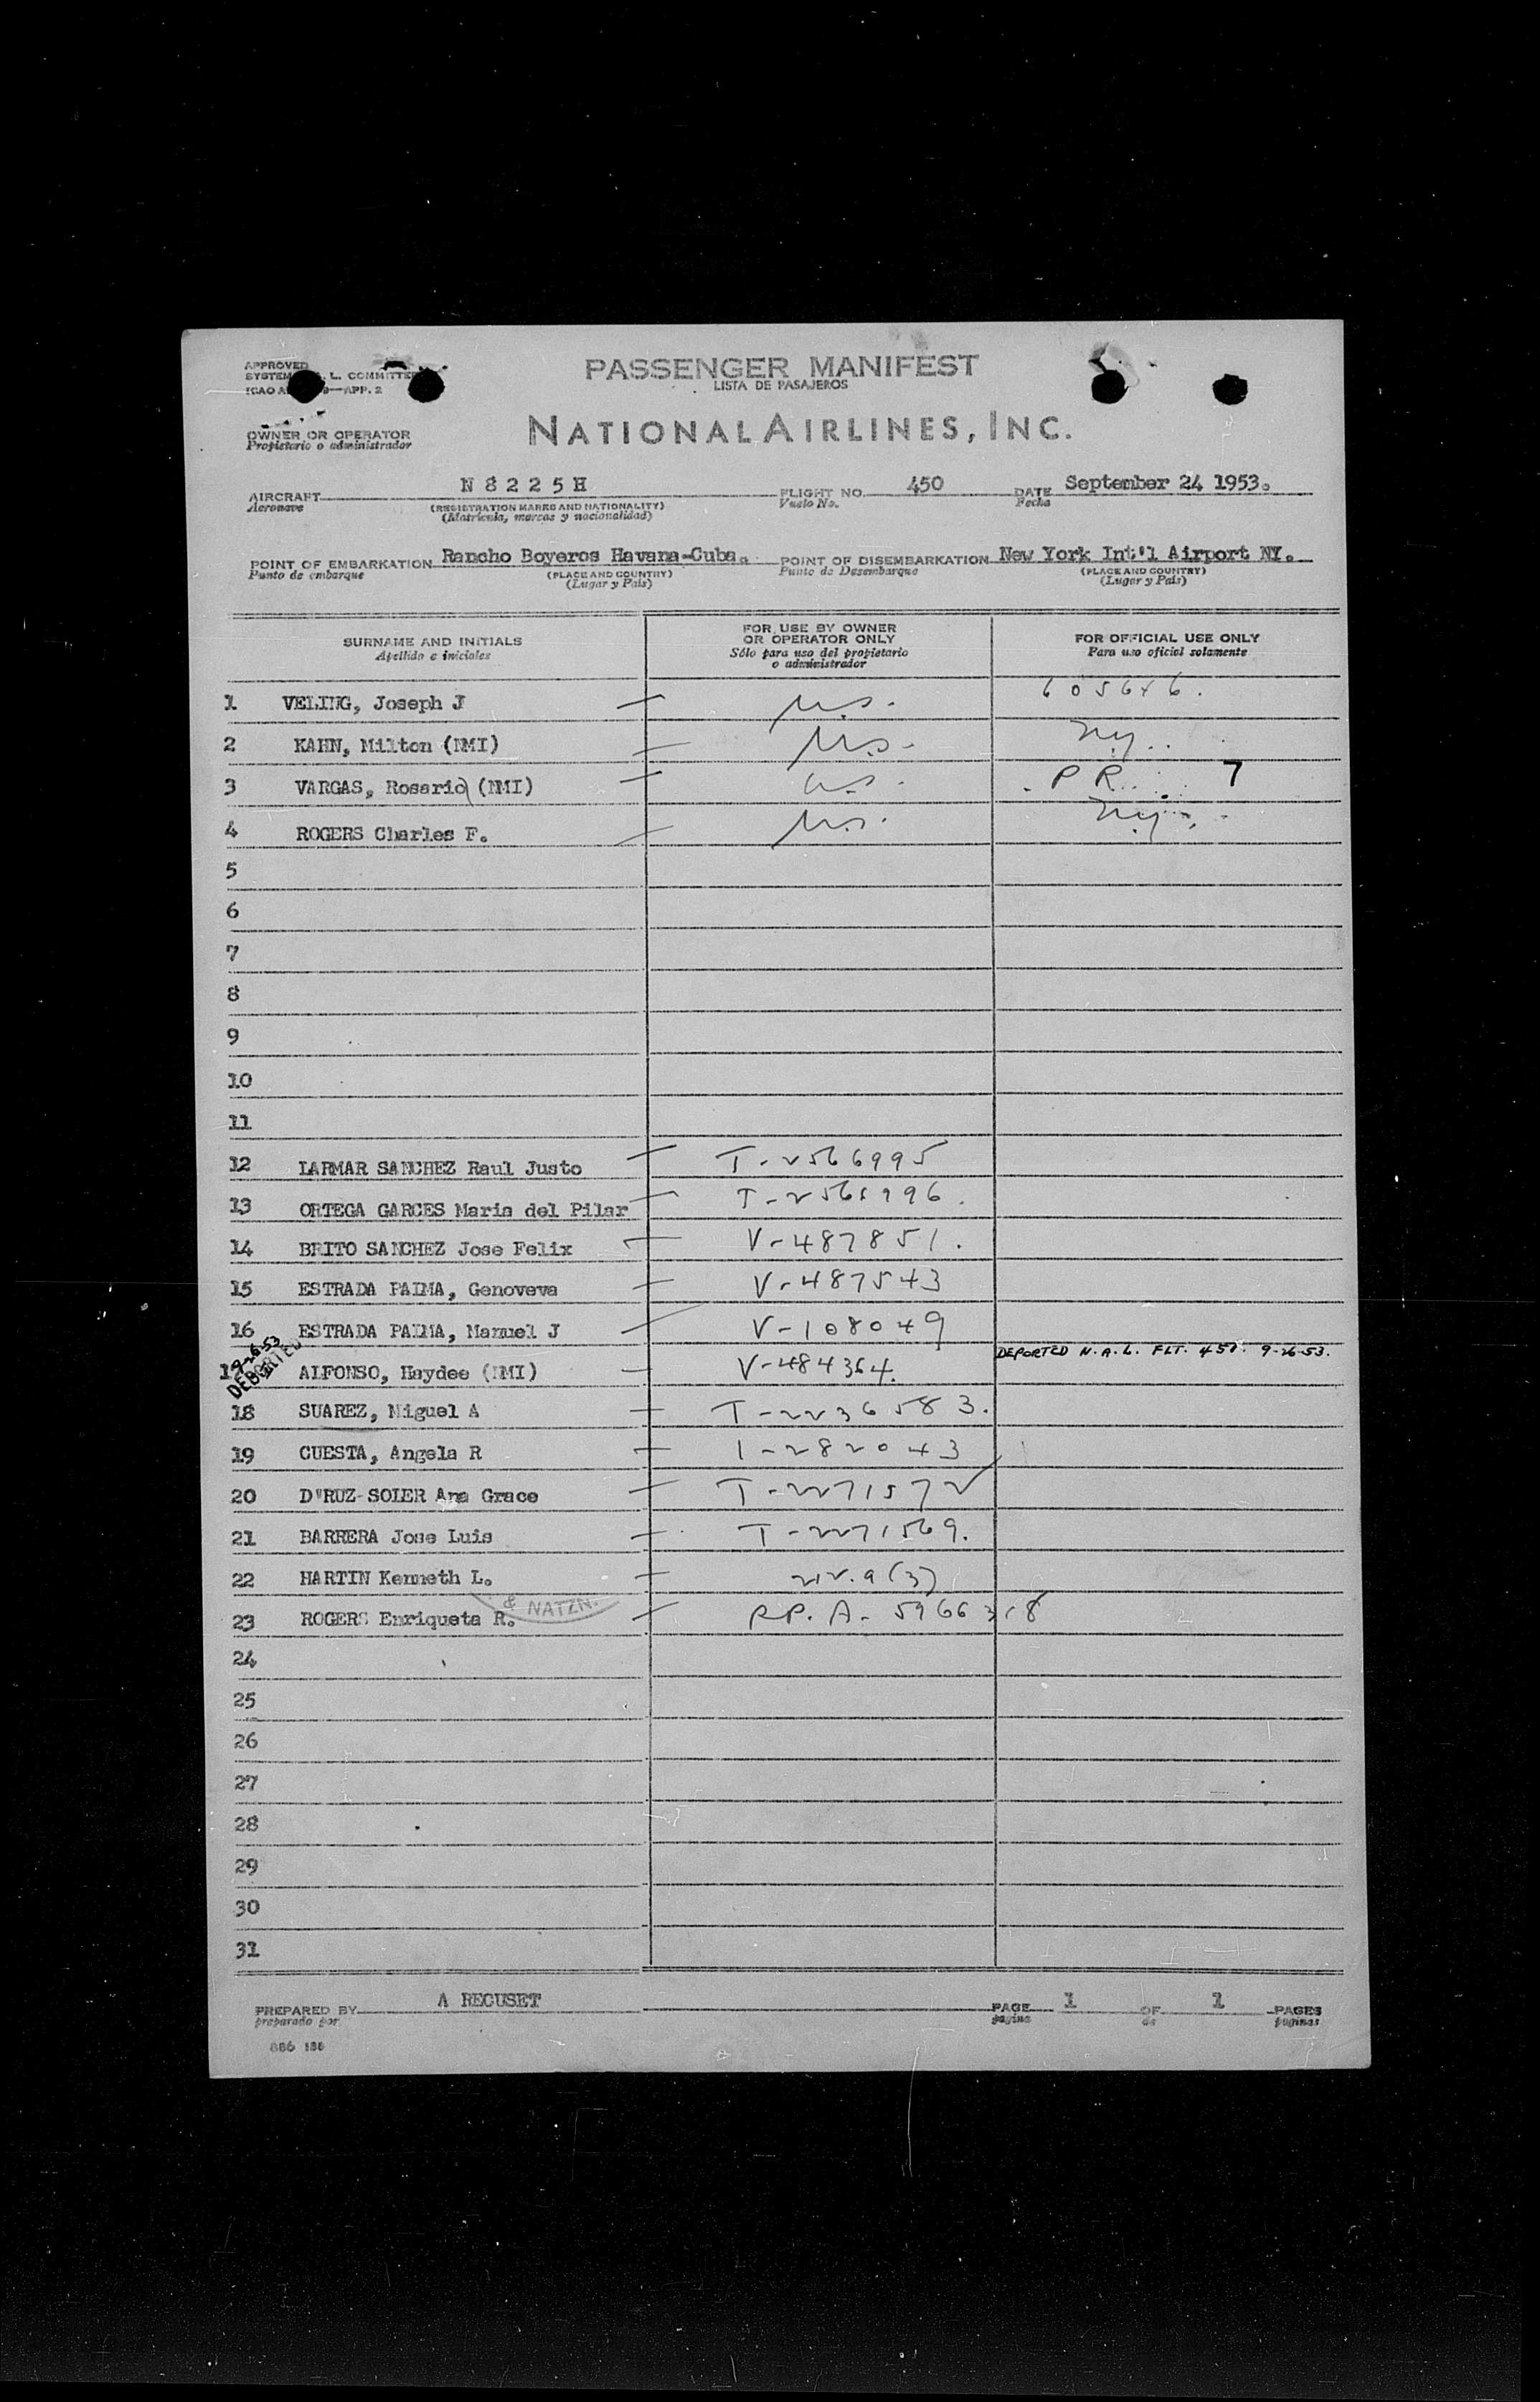 APPROVED
PASSENGER MANIFEST
LISTA DE PASAJEROS
OWNER OR OPERATOR
Propietario o administrador
NATIONAL AIRLINES, INC.
AIRCRAFT N 8 2 2 5 H FLIGHT NO. 450 DATE September 24 1953.
Aeronave (REGISTRATION MARKS AND NATIONALITY) Vuelo No. Fecha
(Matrícula, marcas y nacionalidad)
POINT OF EMBARKATION Rancho Boyeros Havana-Cuba. POINT OF DISEMBARKATION New York Int'l Airport NY.
Punto de embarque (PLACE AND COUNTRY) Punto de Desembarque (PLACE AND COUNTRY)
(Lugar y País) (Lugar y País)
SURNAME AND INITIALS FOR USE BY OWNER OR OPERATOR ONLY FOR OFFICIAL USE ONLY
Apellido e iniciales Sólo para uso del propietario o administrador Para uso oficial solamente
1 VELING, Joseph J U.S.
2 KAHN, Milton (NMI) U.S. NY.
3 VARGAS, Rosario (NMI) U.S. P R. 7
4 ROGERS Charles F. U.S. NY.
5
6
7
8
9
10
11
12 LARMAR SANCHEZ Raul Justo T-2566995
13 ORTEGA GARCES Maria del Pilar
14 BRITO SANCHEZ Jose Felix V-487851.
15 ESTRADA PALMA, Genoveva V-487543
16 ESTRADA PALMA, Manuel J V-108049
9-26-53
DEPORTED
17 ALFONSO, Haydee (NMI) V-484364. DEPORTED N.A.L. FLT. 451. 9-26-53.
18 SUAREZ, Miguel A T-2236583.
19 CUESTA, Angela R 1-282043
20 D'RUZ-SOLER Ana Grace T-2271572
21 BARRERA Jose Luis T-2271569.
22 HARTIN Kenneth L. 212.9(3)
23 ROGERS Enriqueta R. & NATZN. RP. A-5966318
24
25
26
27
28
29
30
31
PREPARED BY A RECUSET PAGE 1 OF 1 PAGES
preparado por página de páginas